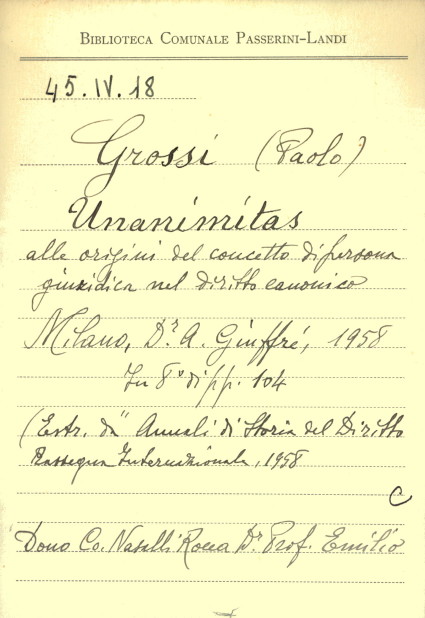 BIBLIOTECA COMUNALE PASSERINI-LANDI
45.IV.18
Grossi (Paolo)
Unanimitas
alle origini del concetto di persona
giuridica nel diritto canonico
Milano, Dr A. Giuffré, 1958
In 8° di pp. 104
(Estr. da "Annali di Storia del Diritto
Rassegna Internazionale, 1958
C
Dono Co. Nasalli Rocca Dr. Prof. Emilio